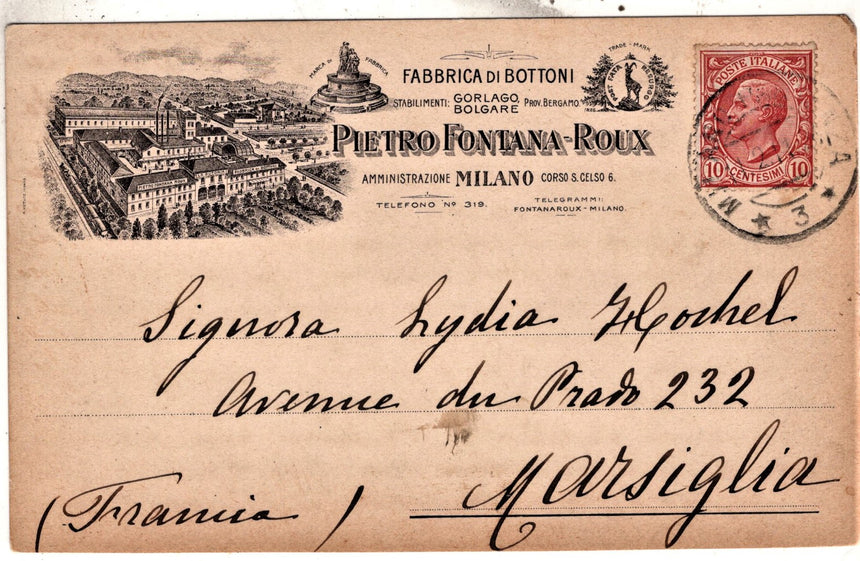 MARCA DI FABBRICA
TRADE - MARK
FABBRICA DI BOTTONI
STABILIMENTI: GORLAGO BOLGARE PROV. BERGAMO.
PIETRO FONTANA-ROUX
AMMINISTRAZIONE MILANO CORSO S. CELSO 6.
TELEFONO Nº 319.
TELEGRAMMI: FONTANAROUX-MILANO.
POSTE ITALIANE
10 CENTESIMI 10
3
Signora Lydia Hochel
Avenue du Prado 232
Marsiglia
(Francia)